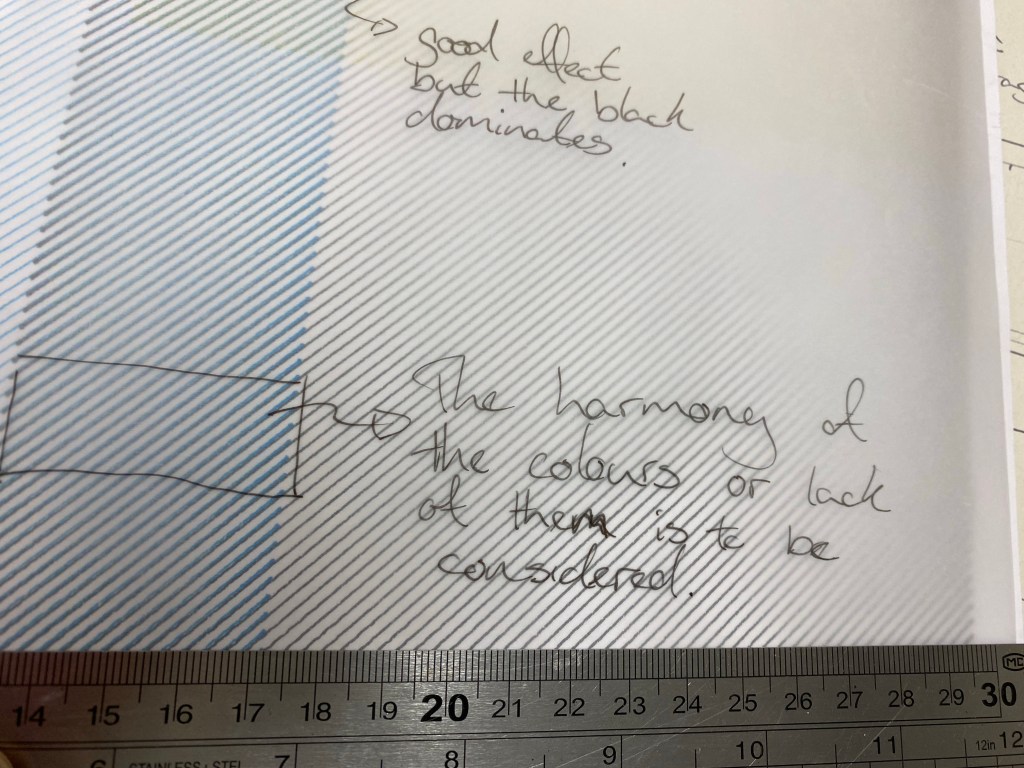 good effect
but the black
dominates.
The harmony of
the colours or lack
of them is to be
considered.
14 15 16 17 18 19 20 21 22 23 24 25 26 27 28 29 30
6 STAINLESS STEEL 7 8 9 10 11 12in 12